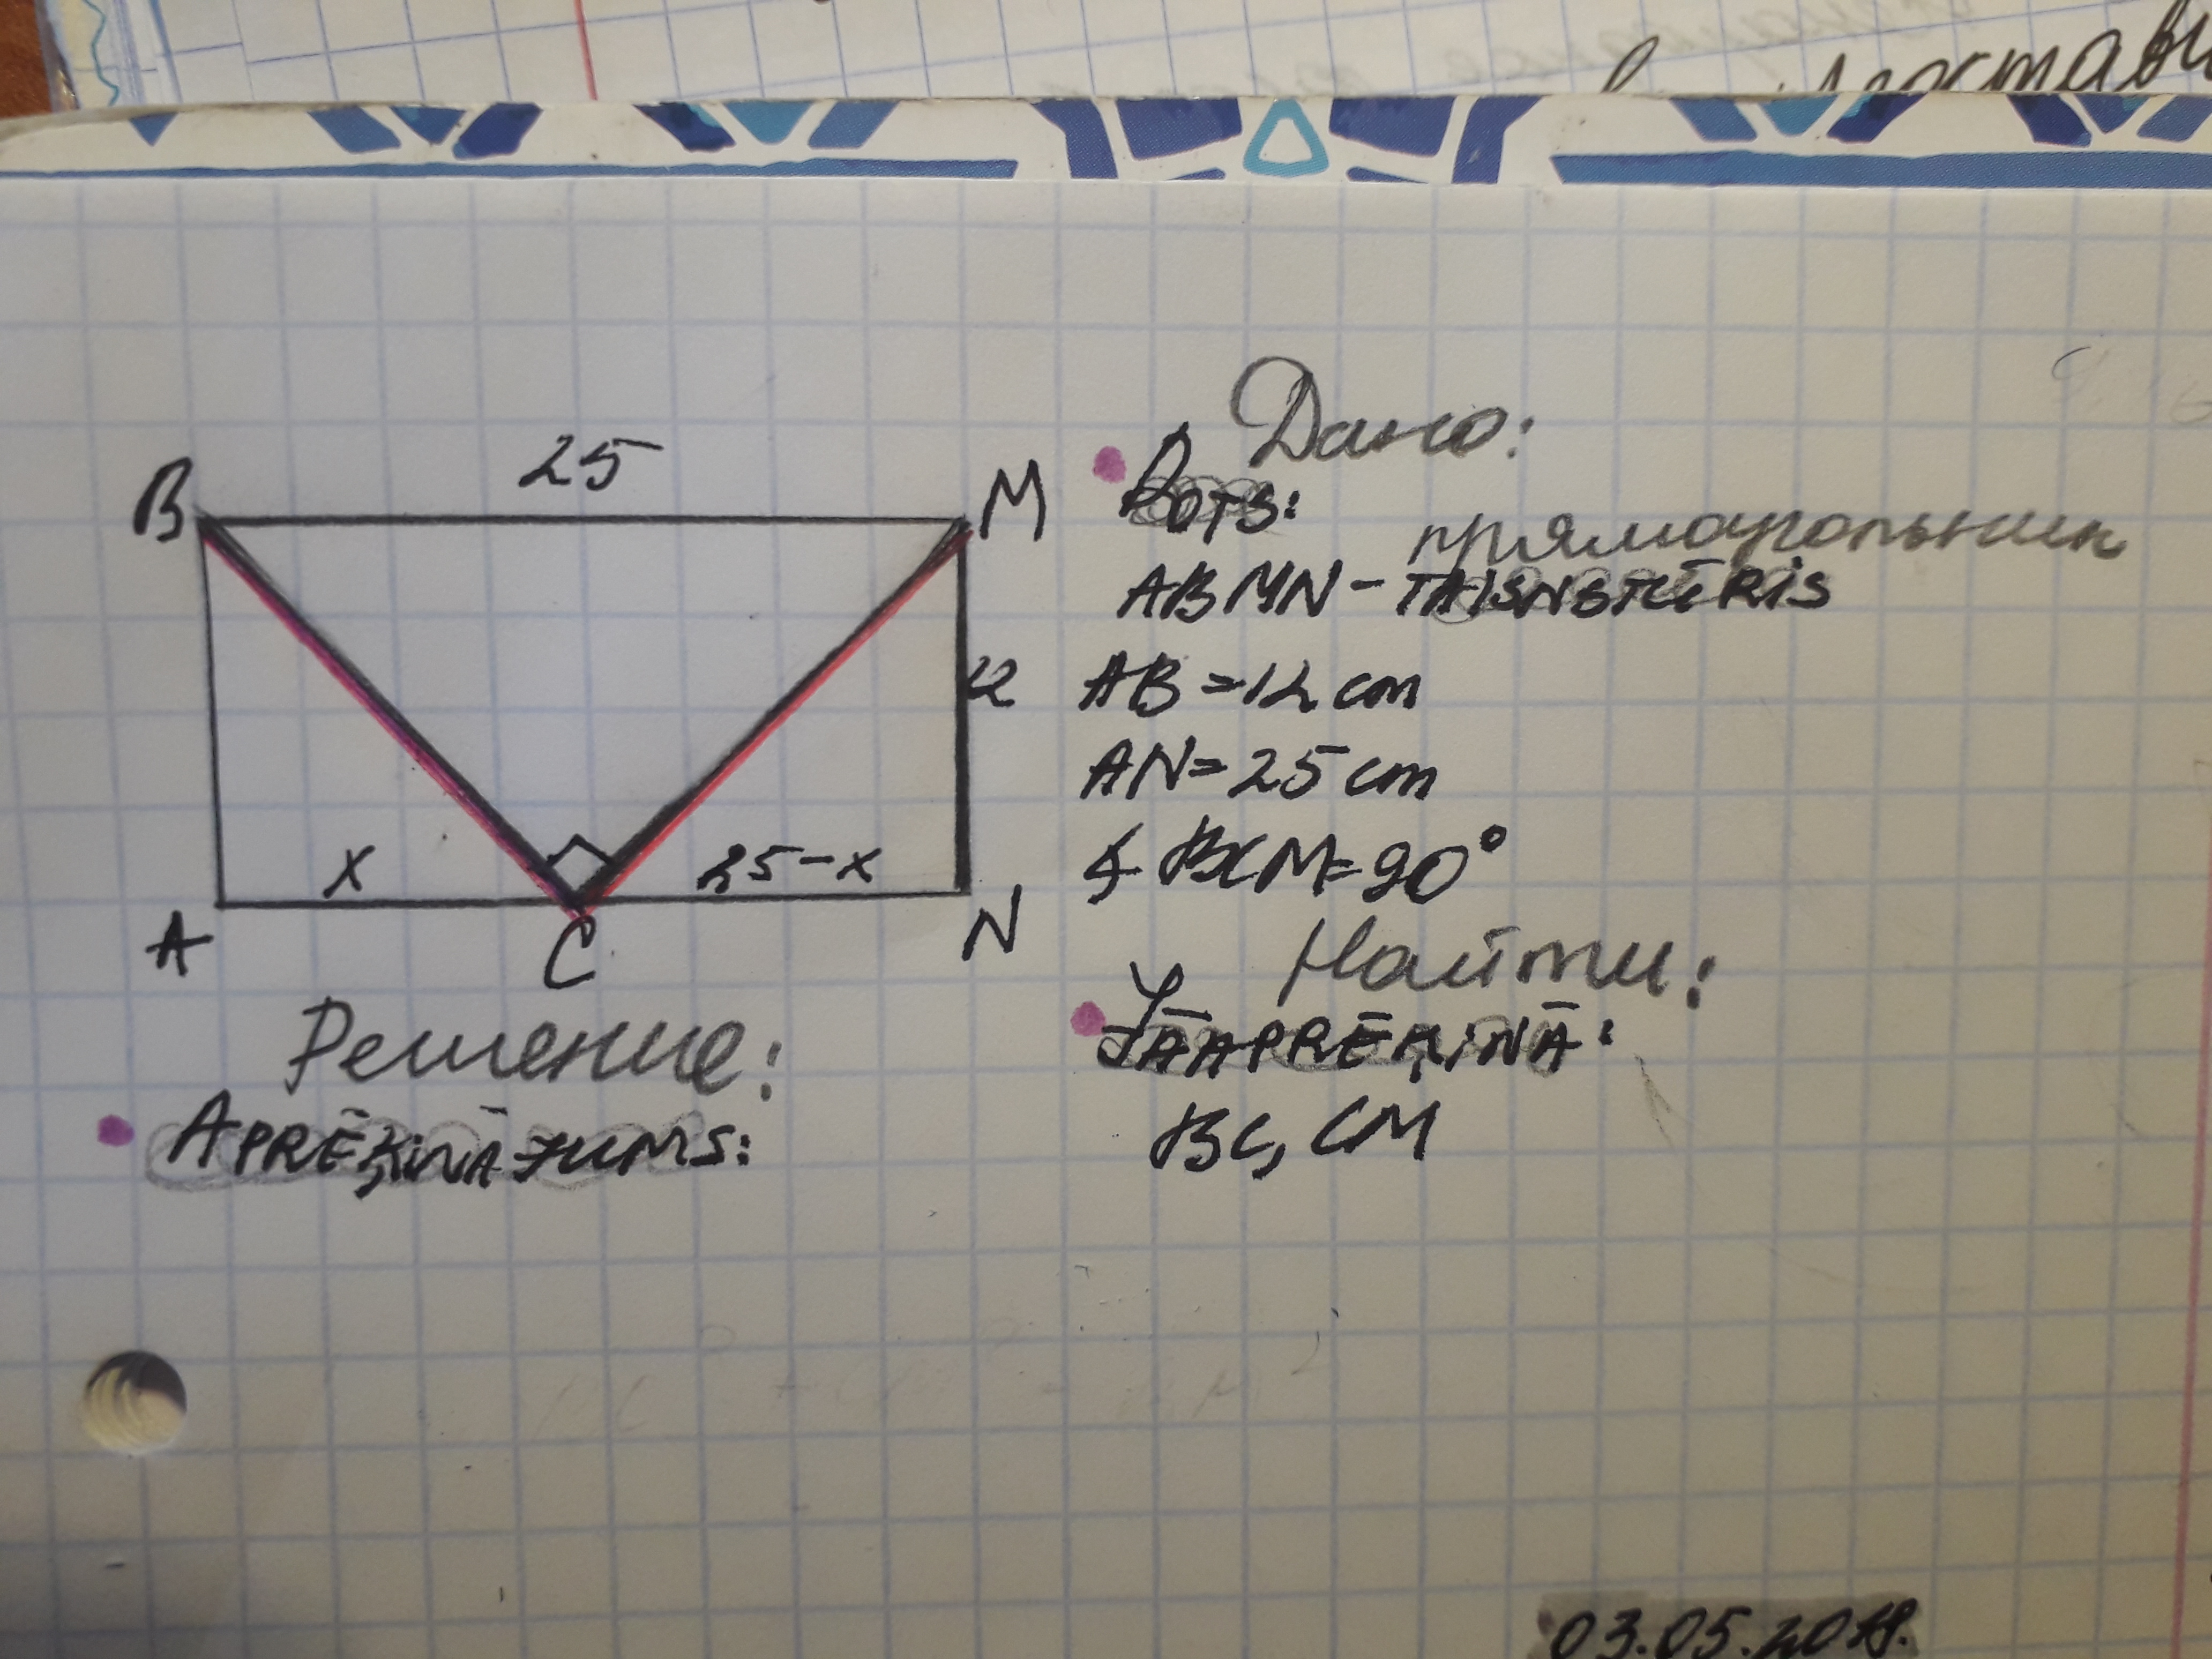 25
B
M
12
x
25-x
A
C
N
Дано:
DOTS:
прямоугольник
ABMN - TAISNSTŪRIS
AB = 12 cm
AN = 25 cm
∢ BCM = 90°
Найти:
JĀAPRĒĶINĀ:
BC, CM
Решение:
APRĒĶINĀJUMS:
03.05.2018.